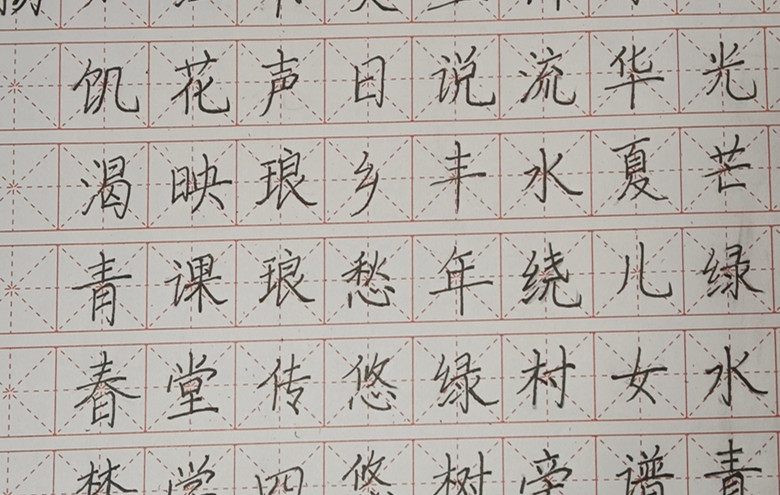 光芒绿水青
华夏儿女谱
流水绕村旁
说丰年绿树
日乡愁悠悠
声琅琅传四
花映课堂学
饥渴青春梦